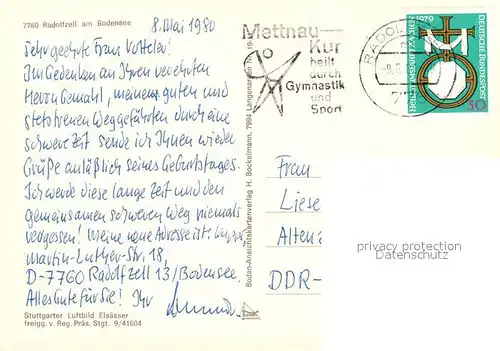 7760 Radolfzell am Bodensee
8. Mai 1980
Sehr geehrte Frau Votteler!
Im Gedenken an Ihren verehrten
Herrn Gemahl, meinem guten und
stets treuen Weggefährten durch eine
schwere Zeit sende ich Ihnen wieder
Grüße anläßlich seines Geburtstages.
Ich werde diese lange Zeit und den
gemeinsamen schweren Weg niemals
vergessen! Meine neue Adresse ist:
Martin-Luther-Str. 18,
D-7760 Radolfzell 13/Bodensee.
Alles Gute für Sie! Ihr
Stuttgarter Luftbild Elsässer
freigg. v. Reg. Präs. Stgt. 9/41604
Bodan-Ansichtskartenverlag H. Bockelmann, 7994 Langenargen, Nr. 19
Mettnau
Kur
heilt
durch
Gymnastik
und
Sport
RADOLF
77
1979
DEUTSCHE BUNDESPOST
50
Frau
Liese
Altenz
DDR-
privacy protection
Datenschutz